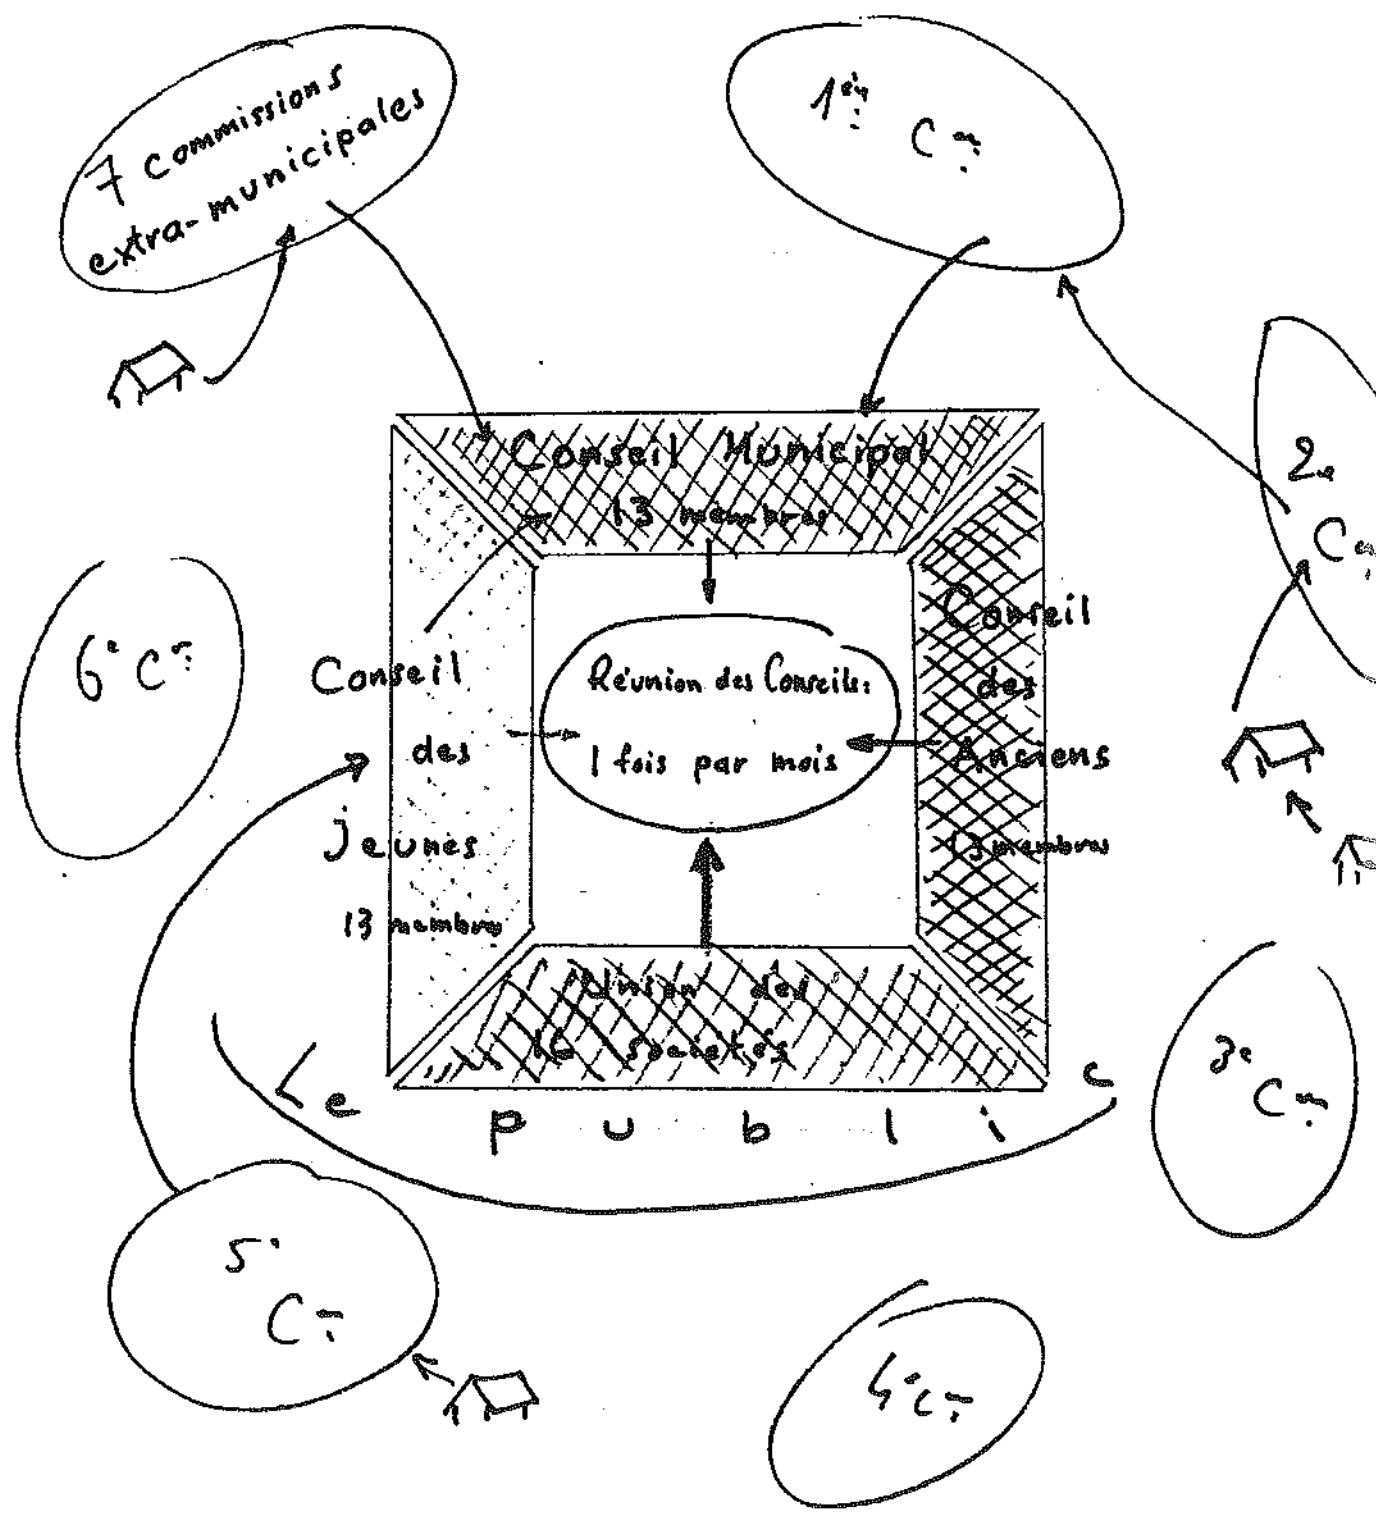 7 commissions
extra-municipales
1èr
C
2e
C
Conseil Municipal
13 membres
Conseil
des
Anciens
13 membres
Réunion des Conseils:
1 fois par mois
Conseil
des
jeunes
13 membres
6e C
Union des
16 sociétés
Le public
3e
C
5e
C
4e C